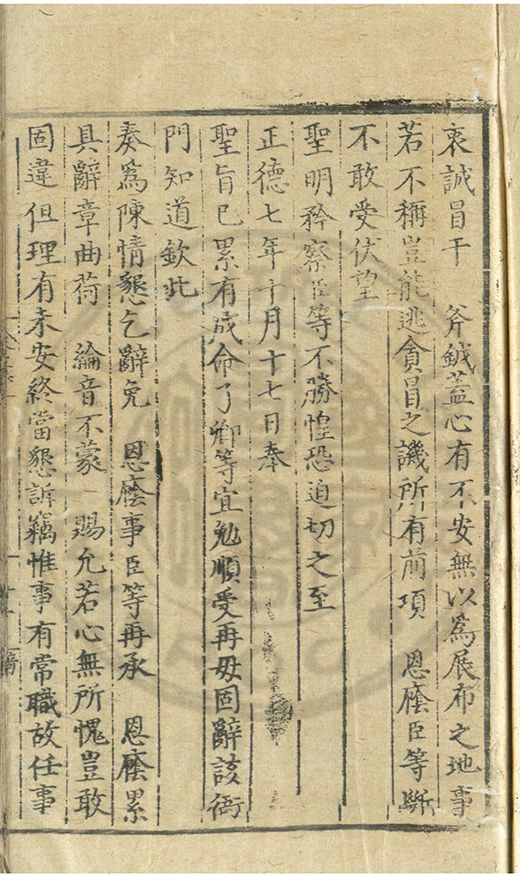 衷誠冒干　斧鉞蓋心有不安無以為展布之地事
若不稱豈能逃貪冒之譏所有前項　恩廕臣等斷
不敢受伏望
聖明矜察臣等不勝惶恐迫切之至
正德七年十月十七日奉
聖旨已累有成命了卿等宜勉順受再毋固辭該衙
門知道欽此
奏為陳情懇乞辭免　恩廕事臣等再承　恩廕累
具辭章曲荷　綸音不蒙　賜允若心無所愧豈敢
固違但理有未安終當懇訴竊惟事有常職故任事